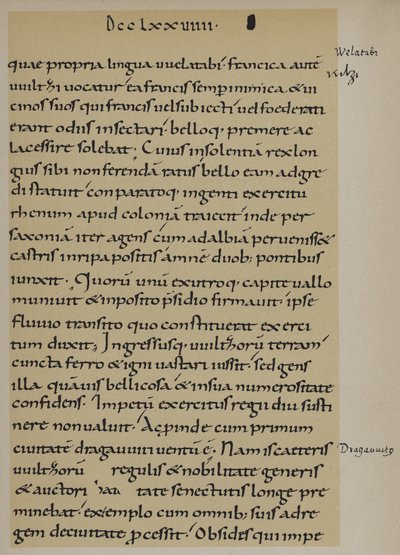 DccLXXVIIII·
Welatabi
quae propria lingua uuelatabi· francica autē
uuiltzi uocatur ea francis semp inimica & ui
cinos suos qui francis uel subiecti uel foederati
erant odiis insectari· belloq· premere ac
lacessire solebat· Cuius insolentiā rex lon
gius sibi non ferendā ratus bello eam adgre
di statuit conparatoq· ingenti exercitu
rhenum apud coloniā traiecit inde per
saxoniā iter agens cum ad albiā peruenisset
castris in ripa positis amnē duob; pontibus
iunxit· Quorū unū ex utroq· capite uallo
muniuit & inposito p̄sidio firmauit· ipse
fluuio transito quo constituerat exerci
tum duxit; Ingressusq· uuiltzorū terram
cuncta ferro & igni uastari iussit· sed gens
illa quāuis bellicosa & in sua numerositate
confidens· Impetū exercitus regii diu susti
nere non ualuit· Ac proinde cum primum
ciuitatē dragauuiti uentū ē· Nam is caeteris
Dragauuito
uuiltzorū regulis & nobilitate generis
& auctoritate senectutis longe pre
minebat· ex templo cum omnib; suis ad re
gem de ciuitate pcessit· Obsides qui impe